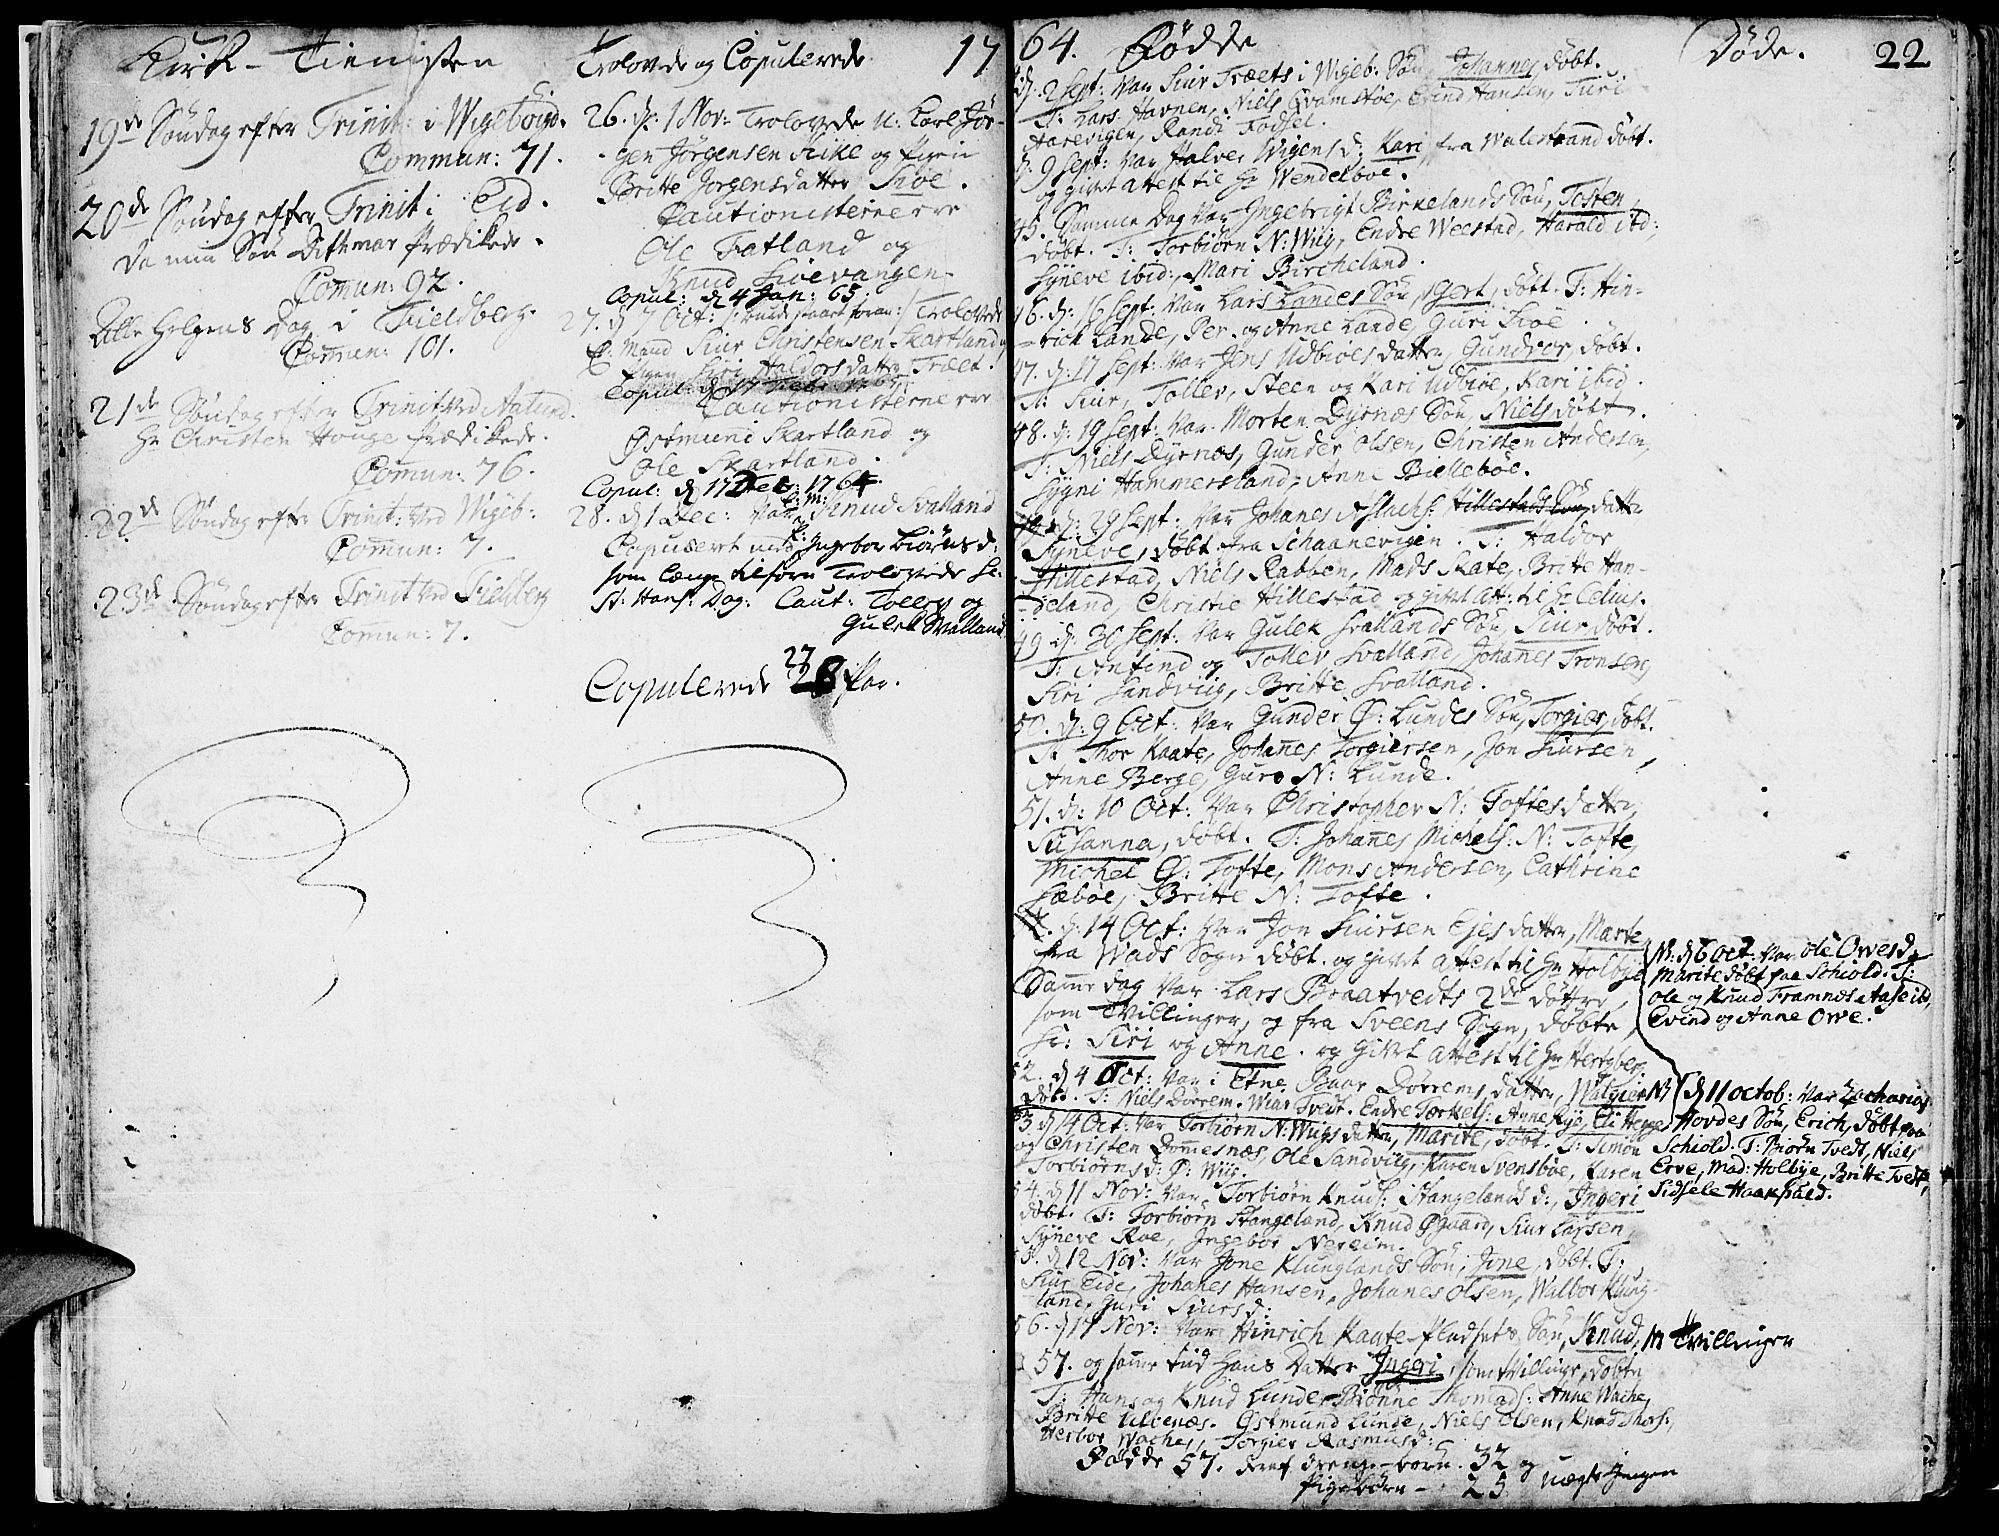 Kirk-Tienisten
19de Søndag efter Trinit: i Wigebøigd.
Commun: 71.
20de Søndag efter Trinit: Eid.
da min Søn Dithmar prædikede.
Comun: 92.
Alle Helgens Dag i Fieldberg.
Comun: 101.
21de Søndag efter Trinit: ved Aalund.
Hr Christen Houge prædikede.
Comun: 76.
22de Søndag efter Trinit: ved Wigeb:
Comun: 7.
23de Søndag efter Trinit ved Fieldberg
Comun: 7.
Trolovede og Copulerede
26. d: 1 Nov: Trolovede U: Karl Jør-
gen Jörgensen Rike og Pigen
Britte Jorgensdatter Sioe.
Cautionisterne ere
Ole Tatland og
Knud Sioevangen
Copul: d 4 Jan: 65.
27. d 7 Oct: Trolovede
E: Mand Siur Christensen Skartland
Pigen Siri Haldorsdatter Træet.
Cautionisterne ere
Østmund Skartland og
Ole Skartland.
Copul: d 17 Dec: 1764.
28. d 1 Dec: var E: M: Knud Svalland
Copuleret med P: Ingebor Biörnsd:
som længe tilforn Trolovede sc:
St: Hans: Dag: Caut: Tollev og
Gulek Svalland
Copulerede 27 28 Par.
17
64. Fødde
Døde. 22
d: 2 Sept: var Siur Træets i Wigeb: Søn, Johannes døbt.
T: Lars Havnen, Niels Qvamstøe, Evind Hansen, Turi
Aarevigen, Randi Fodsel.
d: 9 Sept: var Halver Wigens d: Kari fra Walestrand døbt.
og givet attest til Hr Wendelboe.
45. Samme Dag var Ingebrigt Birkelands Søn, Tosten,
døbt. T: Torbiørn N: Wiig, Endre Weestad, Harald ibd:,
Syneve ibid:, Mari Bircheland.
46. d: 16 Sept: var Lars Landes Søn, Gert, døbt. T: Hin-
-rich Lande, Per og Anne Lande, Guri Sioe.
47. d: 17 Sept: var Jens Udbiøes datter, Gundvor, døbt.
T: Siur, Tollev, Steen og Kari Udbiøe, Kari ibid.
48. d: 19 Sept: var Morten Dyrnæs Søn, Niels døbt.
T: Niels Dyrnæs, Gunder Olsen, Christen Andersen,
Sygni Hammersland, Anne Biellebøe.
d: 29 Sept: var Johanes Aslachs: Hillestads Søn, datter
Syneve, døbt fra Schaanevigen. T: Haldor
Hillestad, Niels Rabben, Mads Skate, Brite Han-
-deland, Christie Hillestad og givet att: til Hr Celius.
49 d: 30 Sept: var Gulek Svallands Søn, Siur, døbt.
T: Anfind og Tollev Svalland, Johanes Tronsen,
Siri Sandviig, Britte Svalland.
50. d: 9 Oct: var Gunder Ø: Lundes Søn, Torgier, døbt.
T: Thor Kaate, Johanes Torgiersen, Jon Siursen,
Anne Berge, Guro N: Lunde.
51. d: 10 Oct: var Christopher N: Toftes datter,
Susanna, døbt. T: Johanes Michels: N: Tofte,
Michel Ø: Tofte, Mons Andersen, Cathrine
Sæbøe, Britte N: Tofte.
d: 14 Oct: var Jon Siursen Ejes datter, Marte
fra Wads Sogn døbt. og givet attest til Hr Holbye
Samme dag var Lars Braatvedts 2de døttre,
som Tvillinger, og fra Sveens Sogn, døbte,
sc: Siri og Anne. og givet attest til Hr Hertzberg
52. d 4 Oct: var i Etne Baar Dørrems datter, Walgier
døbt. T: Niels Dørrem. Wiar Tvedt. Endre Torkels: Anne Rye, Eli Hegge
53 d 14 Oct: var Torbiørn N: Wiigs datter, Marite, døbt. T: Simon
og Christen Domesnæs, Ole Sandviig, Karen Svensbøe, Karen
Torbiørnsd: Ø: Wiig.
54. d 11 Nov: var Torbiørn Knuds: Stangelands d:, Ingeri
døbt. T: Torbiørn Stangeland, Knud Øgaard, Siur Larsen,
Syneve Roe, Ingebor Nereim.
55. d 12 Nov: var Jone Klunglands Søn, Jone, døbt. T:
Siur Eide, Johanes Hansen, Johanes Olsen, Walbor Klung-
land, Guri Siursd:
56. d 17 Nov: var Hinrich Kaate-Pladsets Søn, Knud,
57. og samme tiid hans Datter Ingeri, som tvillinge, døbte
T: Hans og Knud Lunde, Brønne Thomas: Anne Wache,
Britte Ulvenæs. Østmund Lunde, Niels Olsen, Knud Thors:,
Herbor Wache, Torgier Rasmusd:
Fødde 57. deraf drenge-børn 32 og
Pigebørn - 25 uægte Ingen
NB: d 6 Oct: var Ole Owes d:
Marite døbt paa Schiold. T:
Ole og Knud Framnæs, Aase ibd,
Evind og Anne Owe.
NB d 11 octob: var Zacharias
Hovdes Søn, Erich, døbt paa
Schiold. T: Biørn Tvedt, Niels
Erve, Mad: Holbye, Britte Tvedt,
Sidsele Haakuld.
NB Tvillinger